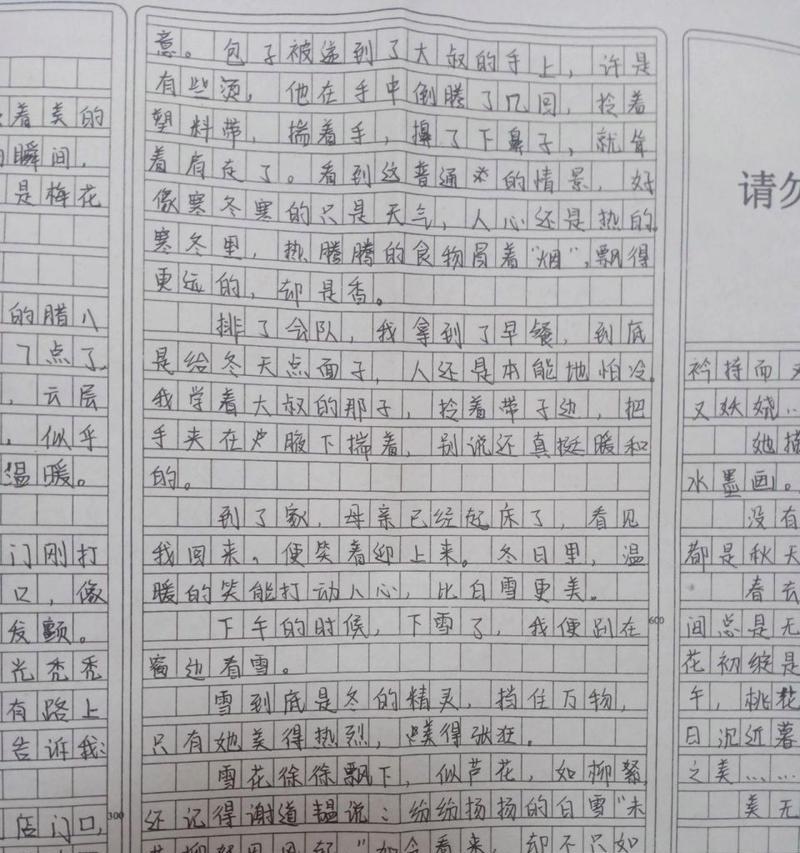 着美的
瞬间，
是梅花
的腊八
7点了
，云层
，似乎
温暖。
门刚打
口，像
发颤。
光秃秃
有路上
告诉我：
店门口，
300
意。包子被递到了大叔的手上，许是
有些烫，他在手中倒腾了几回，拎着
塑料带，揣着手，擤了下鼻子，就耸
着肩走了。看到这普通的情景，好
像寒冬寒的只是天气，人心还是热的。
寒冬里，热腾腾的食物冒着“烟”，飘得
更远的，却是香。
排了会队，我拿到了早餐，到底
是给冬天点面子，人还是本能地怕冷。
我学着大叔的那子，拎着带子边，把
手夹在腋下揣着，别说还真挺暖和
的。
到了家，母亲已经起床了，看见
我回来，便笑着迎上来。冬日里，温
暖的笑能打动人心，比白雪更美。
下午的时候，下雪了，我便趴在
窗边看雪。
600
雪到底是冬的精灵，挡住万物，
只有她美得热烈，美得张狂。
雪花徐徐飘下，似芦花，如柳絮，
还记得谢道韫说：纷纷扬扬的白雪“未
若柳絮因风起”如今看来，却不只如
请勿
衿持而又
又妖娆…
她描
水墨画。
没有
都是秋天
春去
间总是无
花初绽是
午，桃花
日沉近暮
之美……
美无